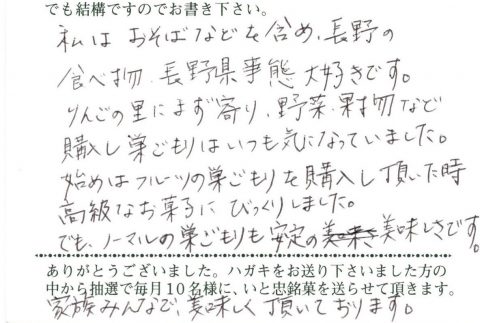 でも結構ですのでお書き下さい。
私はおそばなどを含め、長野の
食べ物、長野県事態大好きです。
りんごの里にまず寄り、野菜、果物など
購入し巣ごもりはいつも気になっていました。
始めはフルーツの巣ごもりを購入し頂いた時
高級なお菓子にびっくりしました。
でも、ノーマルの巣ごもりも安定の美味しさです。
ありがとうございました。ハガキをお送り下さいました方の
中から抽選で毎月10名様に、いと忠銘菓を送らせて頂きます。
家族みんなで、美味しく頂いております。